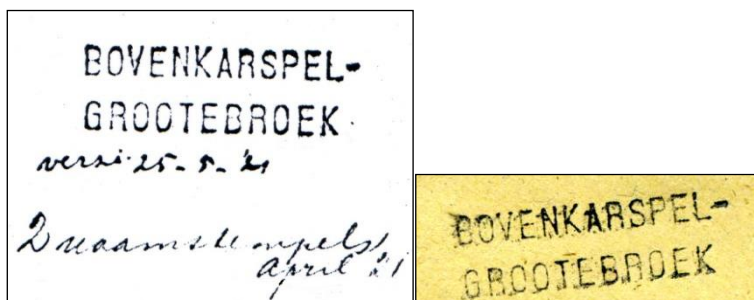 BOVENKARSPEL-
GROOTEBROEK
25-5-'21
2 naamstempels
april '21
BOVENKARSPEL-
GROOTEBROEK